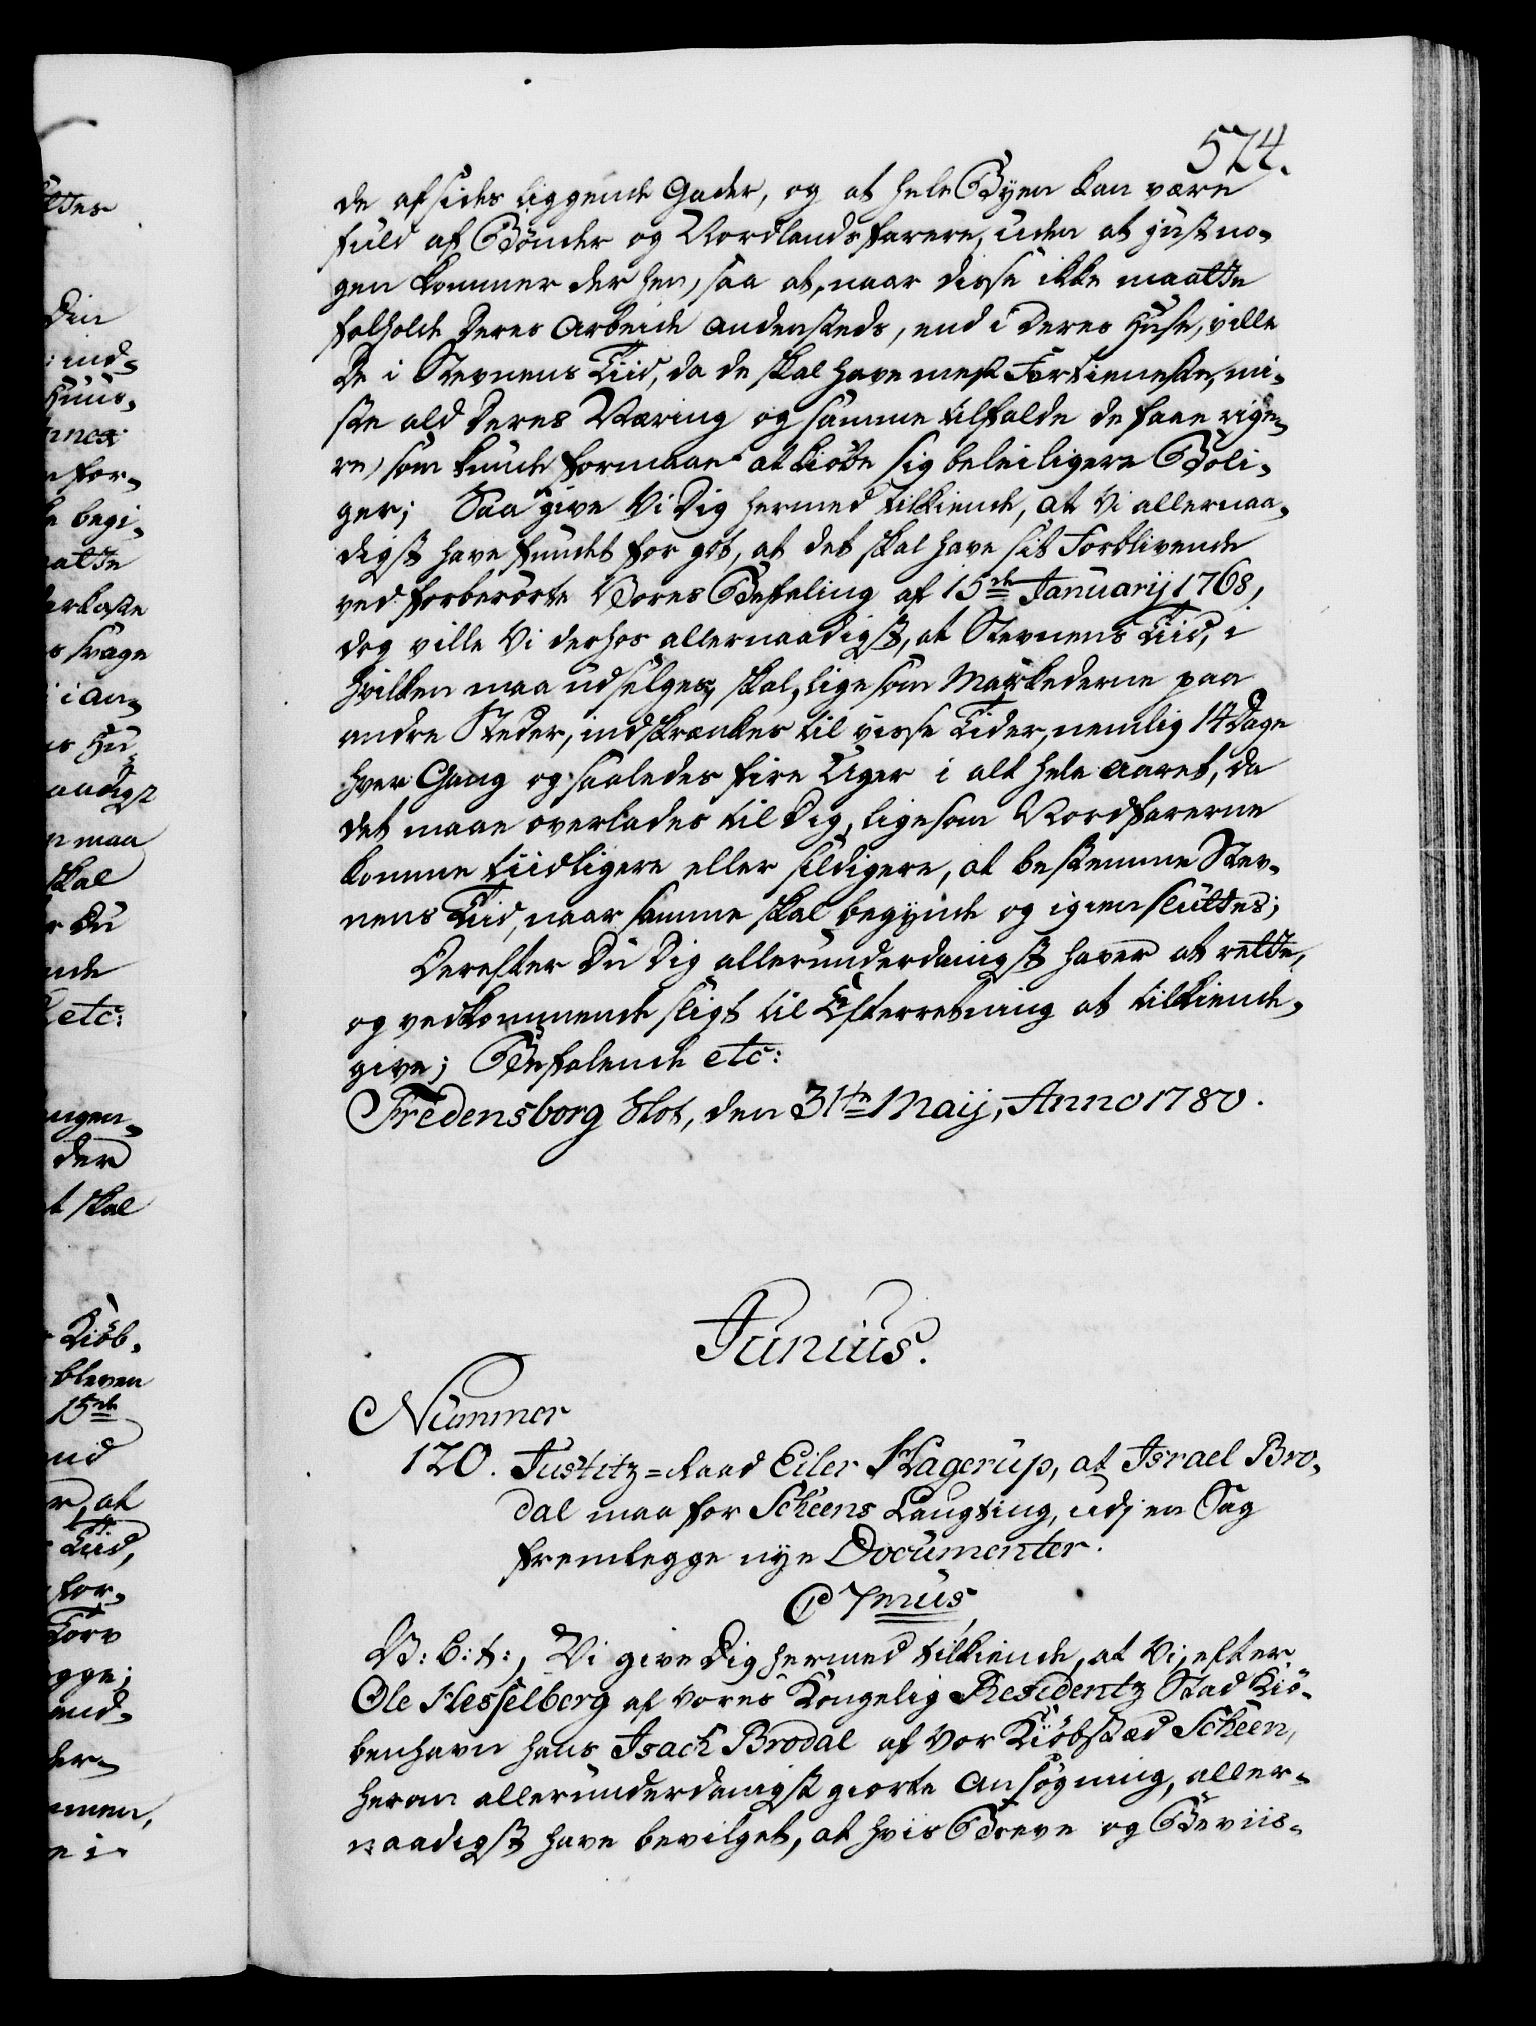 574.
de afsides liggende Gader, og at hele Byen kan være
fuld af Bønder og Nordlandsfarere, uden at just no-
gen kommer der hen, saa at, naar disse ikke maatte
falholde deres Arbeide andensteds, end i deres Huse, ville
de i Stevnens Tiid, da de skal have mest Fortieneste, mi-
ste ald deres Næring og samme tilfalde de faae rige-
re, som kunde formaae at kiøbe sig beleiligere Boli-
ger; Saa give Vi Dig hermed tilkiende, at Vi allernaa-
digst have fundet for got, at det skal have sit Forblivende
ved forberørte Vores Befaling af 15de Januarij 1768,
dog ville Vi derhos allernaadigst, at Stevnens Tiid, i
hvilken maa udselges, skal, ligesom Markederne paa
andre Steder, indskrænkes til visse Tider, nemlig 14 Dage
hver Gang og saaledes fire Uger i alt hele Aaret, da
det maae overlades til Dig, ligesom Nordfarerne
komme tiidligere eller sildigere, at bestemme Stev-
nens Tiid, naar samme skal begynde og igien sluttes;
Derefter Du Dig allerunderdanigst haver at rette,
og vedkommende sligt til Efterretning at tilkiende-
give; Befalende etc:
Fredensborg Slot, den 31te Maij, Anno 1780.
Junius.
Nummer
120. Justitz-Raad Eiler Hagerup, at Israel Bro-
dal maa for Scheens Laugting, udj en Sag
fremlegge nye Documenter.
C 7mus
V: b: t:, Vi give Dig hermed tilkiende, at Vi, efter
Ole Hesselberg af Vores Kongelig Residentz Stad Kiø-
benhavn hans Isach Brodal af Vor Kiøbstæd Scheen,
herom allerunderdanigst giorte Ansøgning, aller-
naadigst have bevilget, at hvis Breve og Beviis-